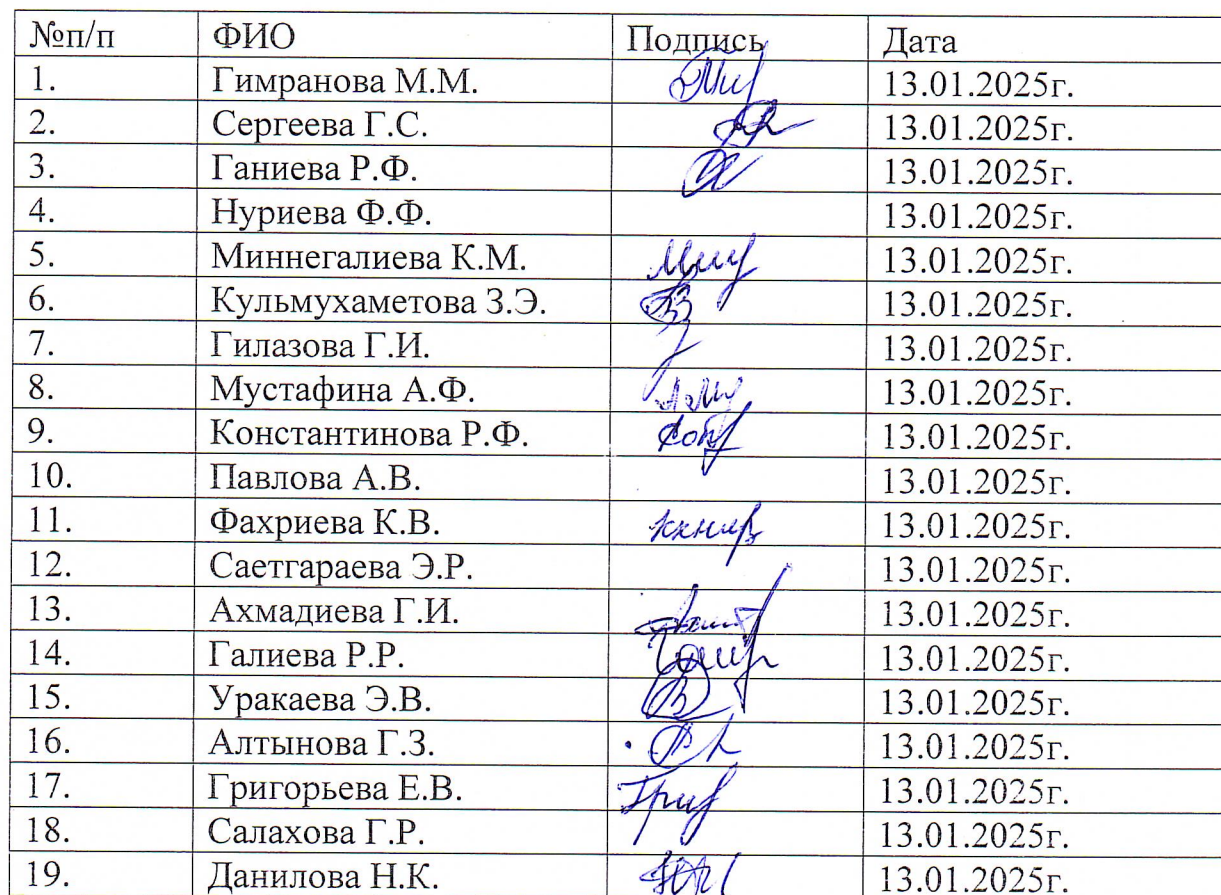 №п/п ФИО Подпись Дата
1. Гимранова М.М. 13.01.2025г.
2. Сергеева Г.С. 13.01.2025г.
3. Ганиева Р.Ф. 13.01.2025г.
4. Нуриева Ф.Ф. 13.01.2025г.
5. Миннегалиева К.М. 13.01.2025г.
6. Кульмухаметова З.Э. 13.01.2025г.
7. Гилазова Г.И. 13.01.2025г.
8. Мустафина А.Ф. 13.01.2025г.
9. Константинова Р.Ф. 13.01.2025г.
10. Павлова А.В. 13.01.2025г.
11. Фахриева К.В. 13.01.2025г.
12. Саетгараева Э.Р. 13.01.2025г.
13. Ахмадиева Г.И. 13.01.2025г.
14. Галиева Р.Р. 13.01.2025г.
15. Уракаева Э.В. 13.01.2025г.
16. Алтынова Г.З. 13.01.2025г.
17. Григорьева Е.В. 13.01.2025г.
18. Салахова Г.Р. 13.01.2025г.
19. Данилова Н.К. 13.01.2025г.